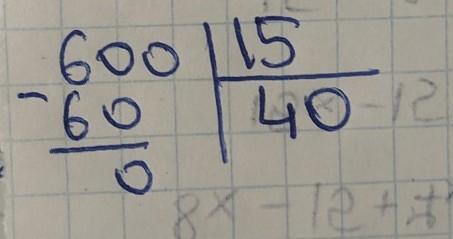 600 | 15
- 60 | 40
0
8x - 12 +